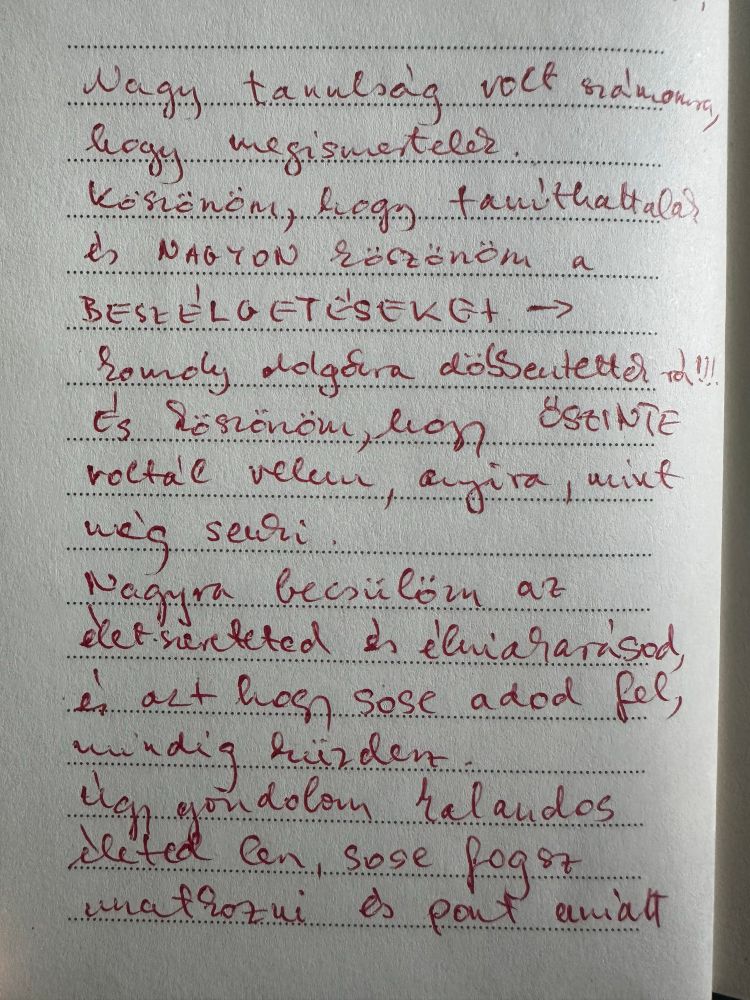 Nagy tanulság volt számomra,
hogy megismertelek.
Köszönöm, hogy taníthattalak
és NAGYON köszönöm a
BESZÉLGETÉSEKET →
komoly dolgokra döbbentettél rá!!!
És köszönöm, hogy ŐSZINTE
voltál velem, annyira, mint
még senki.
Nagyra becsülöm az
életszereteted és élniakarásod,
és azt hogy sose adod fel,
mindig küzdesz.
Úgy gondolom kalandos
életed lesz, sose fogsz
unatkozni és pont amiatt